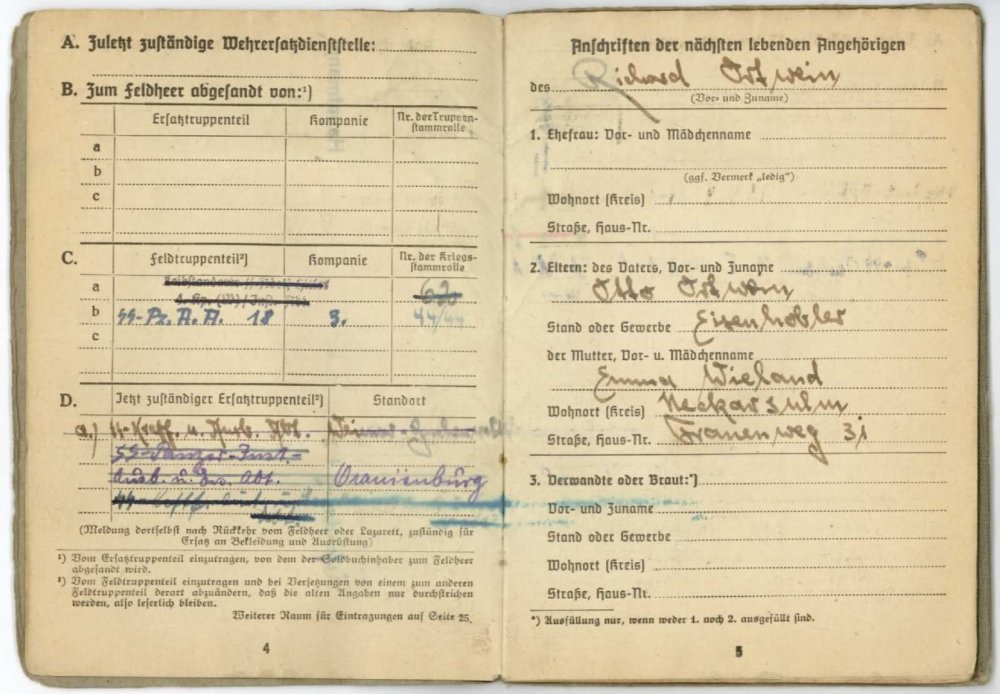 A. Zuletzt zuständige Wehrersatzdienststelle:
B. Zum Feldheer abgesandt von:¹)
Ersatztruppenteil Kompanie Nr. der Truppen-
stammrolle
a
b
c
C. Feldtruppenteil²) Kompanie Nr. der Kriegs-
stammrolle
a
b SS-Pz. A. A. 18 3. 44/44
c
D. Jetzt zuständiger Ersatztruppenteil²) Standort
a.) SS-Kraftf. u. Abt. Weimar-
SS-Panzer-Inst.-
Ausb. u. Ers. Abt. Oranienburg
(Meldung dortselbst nach Rückkehr vom Feldheer oder Lazarett, zuständig für
Ersatz an Bekleidung und Ausrüstung)
¹) Vom Ersatztruppenteil einzutragen, von dem der Soldbuchinhaber zum Feldheer
abgesandt wird.
²) Vom Feldtruppenteil einzutragen und bei Versetzungen von einem zum anderen
Feldtruppenteil derart abzuändern, daß die alten Angaben nur durchstrichen
werden, also leserlich bleiben.
Weiterer Raum für Eintragungen auf Seite 25.
4
Anschriften der nächsten lebenden Angehörigen
des Richard Ortwein
(Vor- und Zuname)
1. Ehefrau: Vor- und Mädchenname
(ggf. Vermerk „ledig")
Wohnort (Kreis)
Straße, Haus-Nr.
2. Eltern: des Vaters, Vor- und Zuname
Otto Ortwein
Stand oder Gewerbe Eisenhobler
der Mutter, Vor- u. Mädchenname
Emma Wieland
Wohnort (Kreis) Neckarsulm
Straße, Haus-Nr. Frauenweg 31
3. Verwandte oder Braut:*)
Vor- und Zuname
Stand oder Gewerbe
Wohnort (Kreis)
Straße, Haus-Nr.
*) Ausfüllung nur, wenn weder 1. noch 2. ausgefüllt sind.
5